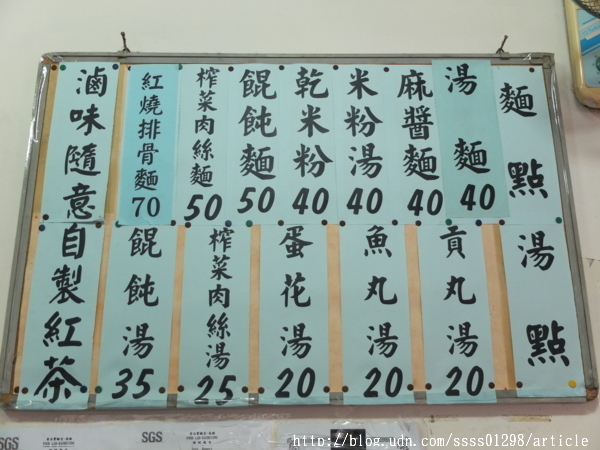 麵點
湯麵 40
麻醬麵 40
米粉湯 40
乾米粉 40
餛飩麵 50
榨菜肉絲麵 50
紅燒排骨麵 70
滷味隨意
湯點
貢丸湯 20
魚丸湯 20
蛋花湯 20
榨菜肉絲湯 25
餛飩湯 35
自製紅茶
SGS
SGS
http://blog.udn.com/ssss01298/article